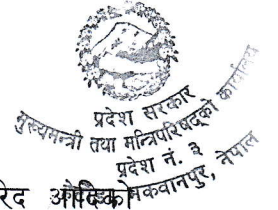 प्रदेश सरकार
मुख्यमन्त्री तथा मन्त्रिपरिषद्को कार्यालय
प्रदेश नं. ३
मकवानपुर, नेपाल